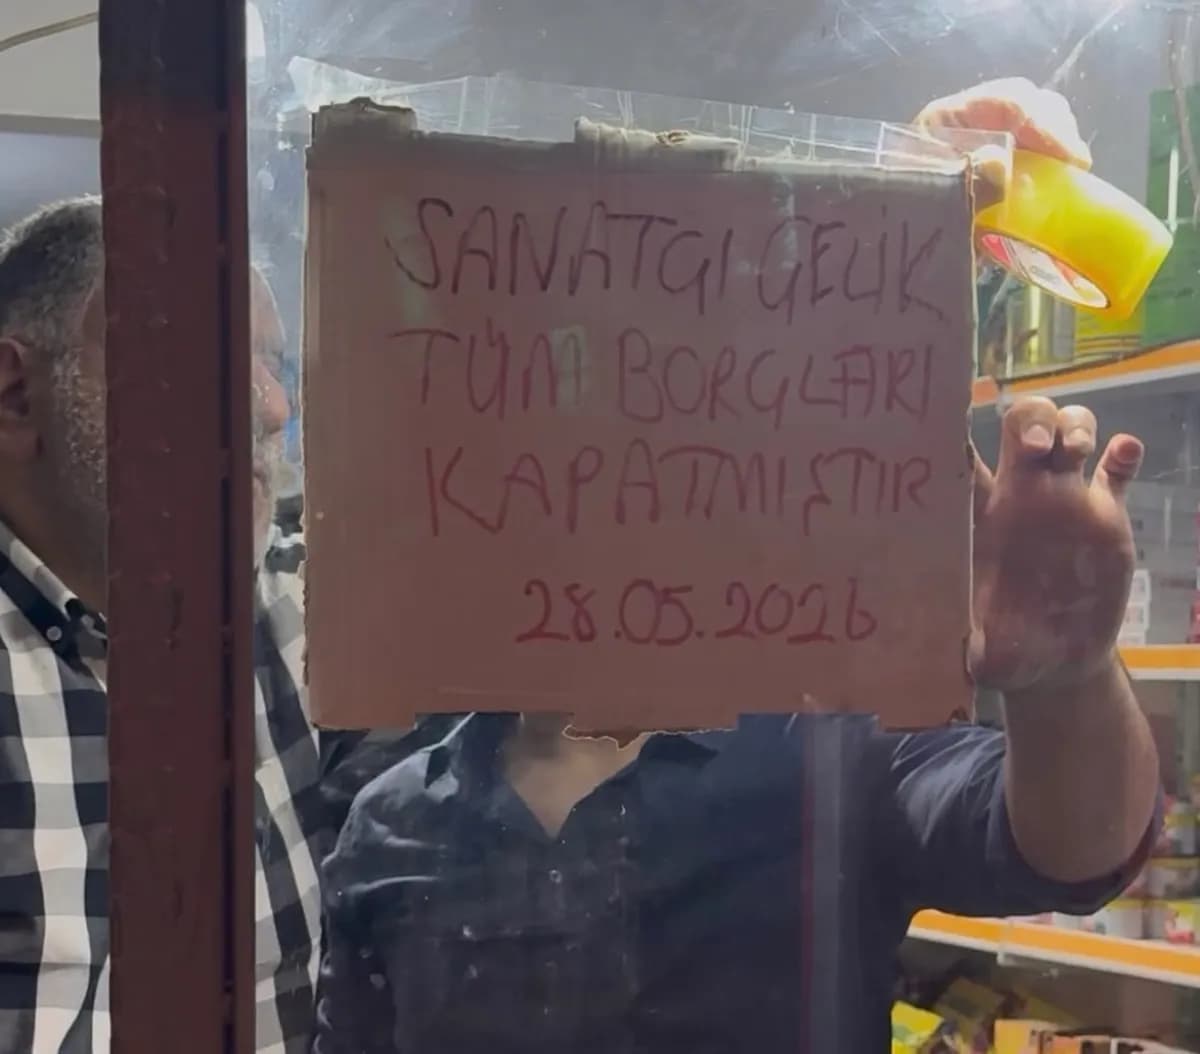 SANATÇI ÇELİK
TÜM BORÇLARI
KAPATMIŞTIR
28.05.2026